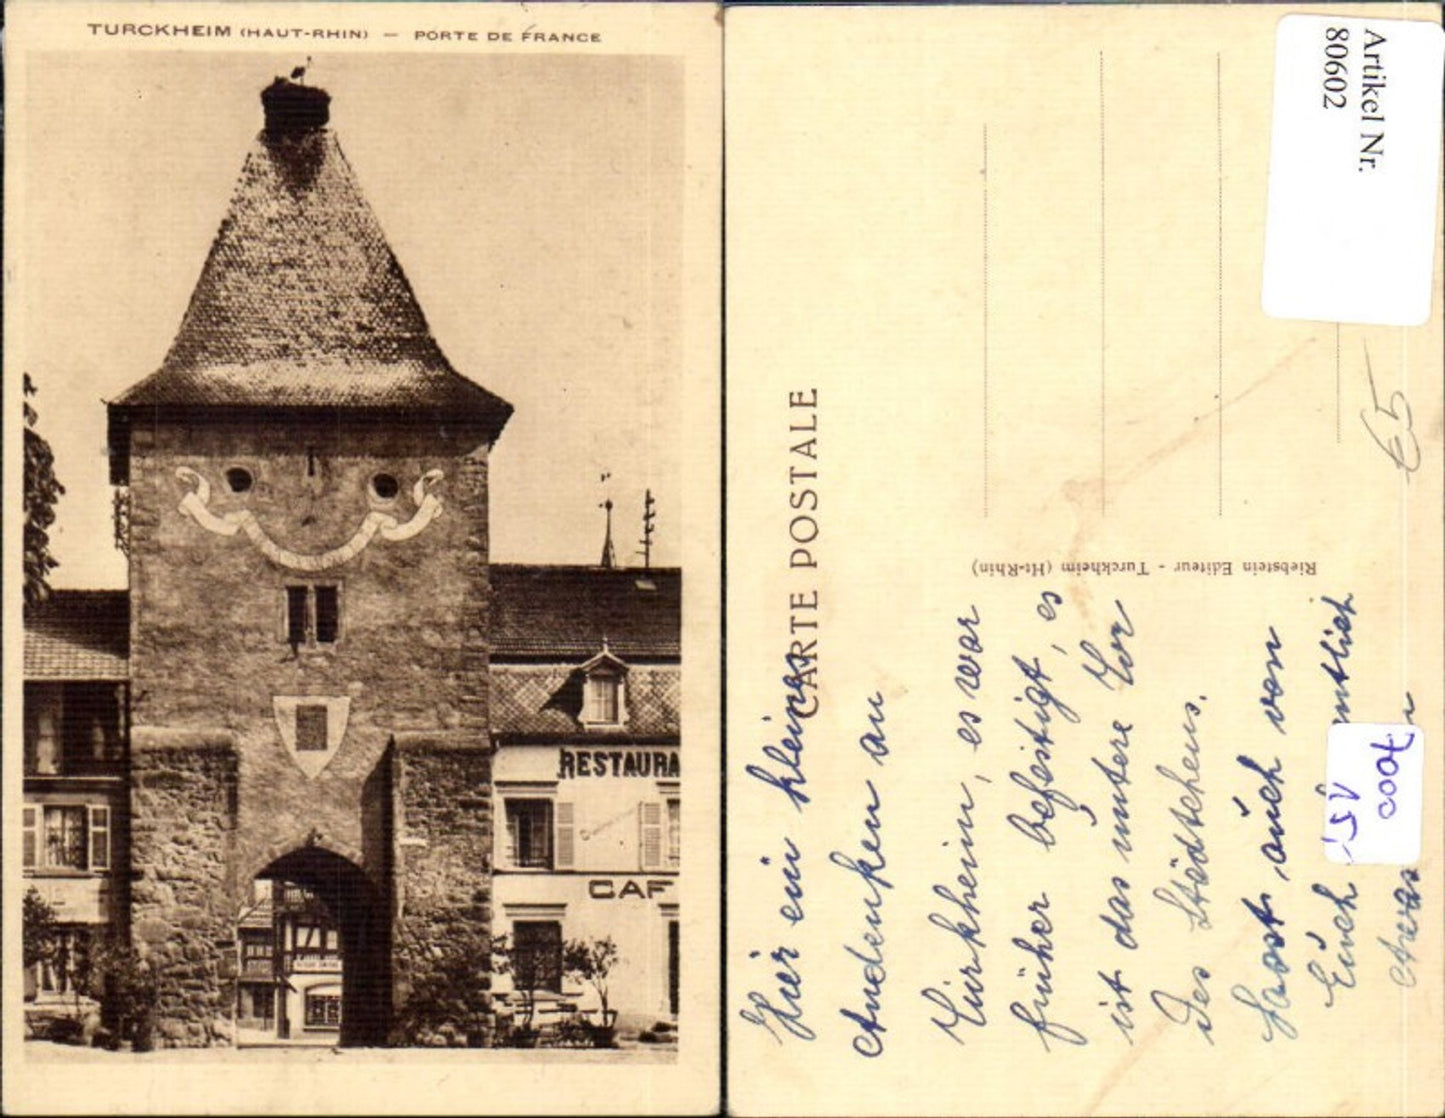 TURCKHEIM (HAUT-RHIN) — PORTE DE FRANCE
RESTAURA
CAF
CARTE POSTALE
Riebstein Editeur - Turckheim (Ht-Rhin)
Artikel Nr.
80602
€5
Hier ein kleines
Andenken an
Türkheim, es war
früher befestigt, es
ist das untere Tor
des Städtchens.
Lasst auch von
Euch
etwas